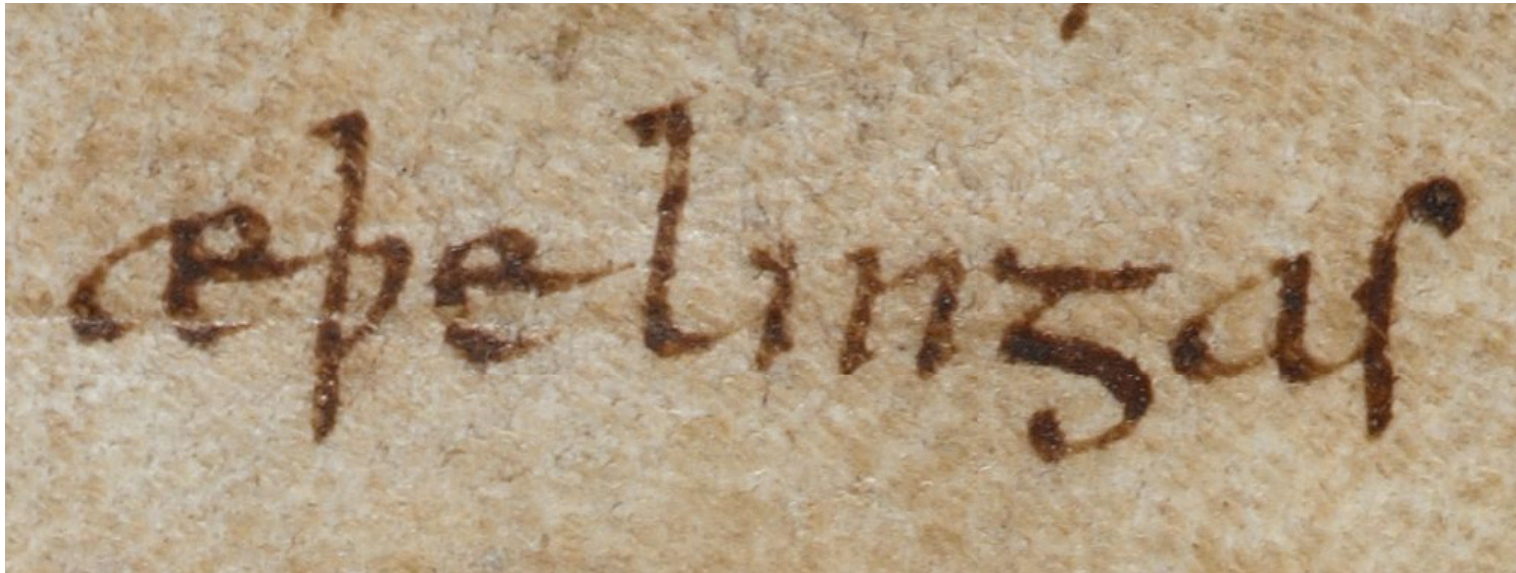 æþelingas